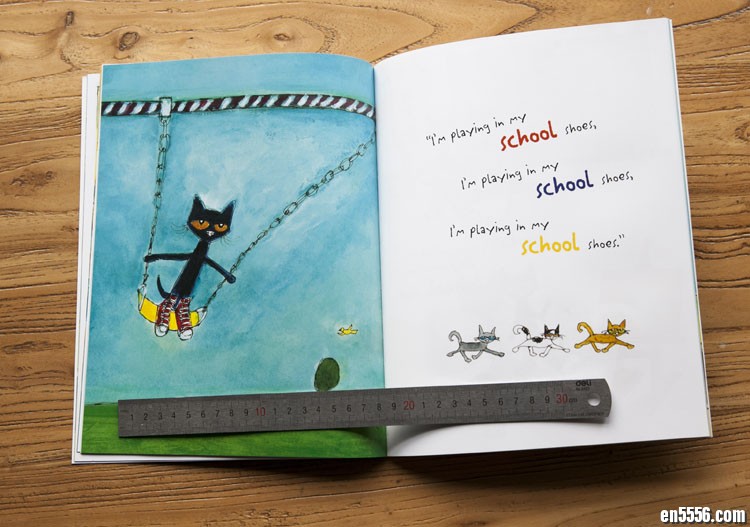 "I'm playing in my school shoes,
I'm playing in my school shoes,
I'm playing in my school shoes."
deli
1 2 3 4 5 6 7 8 9 10 1 2 3 4 5 6 7 8 9 20 1 2 3 4 5 6 7 8 9 30 cm
en5556.com